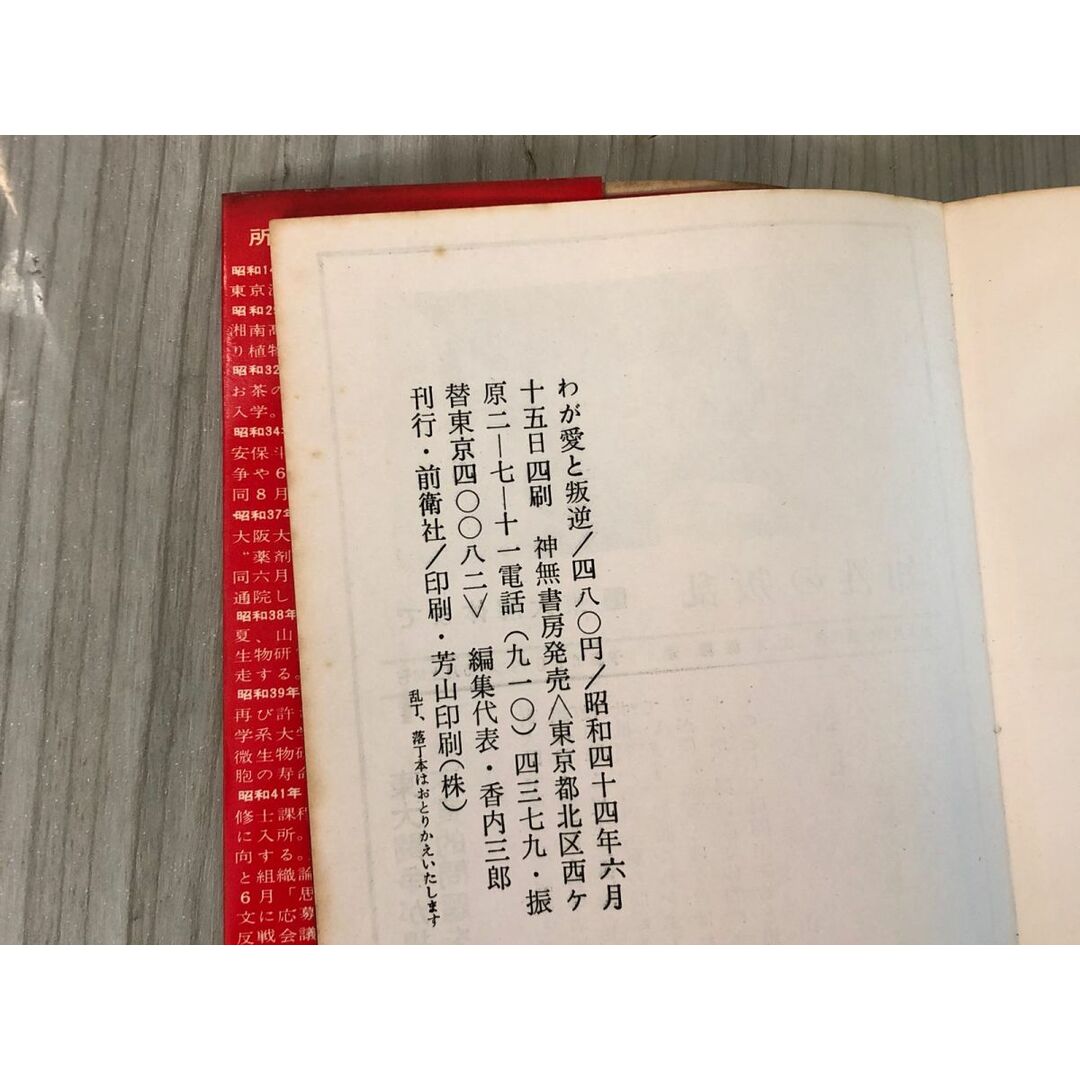 わが愛と叛逆/四八〇円/昭和四十四年六月
十五日四刷　神無書房発売〈東京都北区西ケ
原二―七―十一電話(九一〇)四三七九・振
替東京四〇〇八二〉　編集代表・香内三郎
刊行・前衛社/印刷・芳山印刷(株)
乱丁、落丁本はおとりかえいたします
所
昭和14
東京
昭和2
湘南高
り植物
昭和32
お茶の
入学。
昭和34年
安保斗
争や6
同8月
昭和37年
大阪大
“薬剤
同六月
通院し
昭和38年
夏、山
生物研
走する。
昭和39年
再び許
学系大学
微生物研
胞の寿命
昭和41年
修士課程
に入所。
向する。
と組織論
6月「思
文に応募
反戦会議